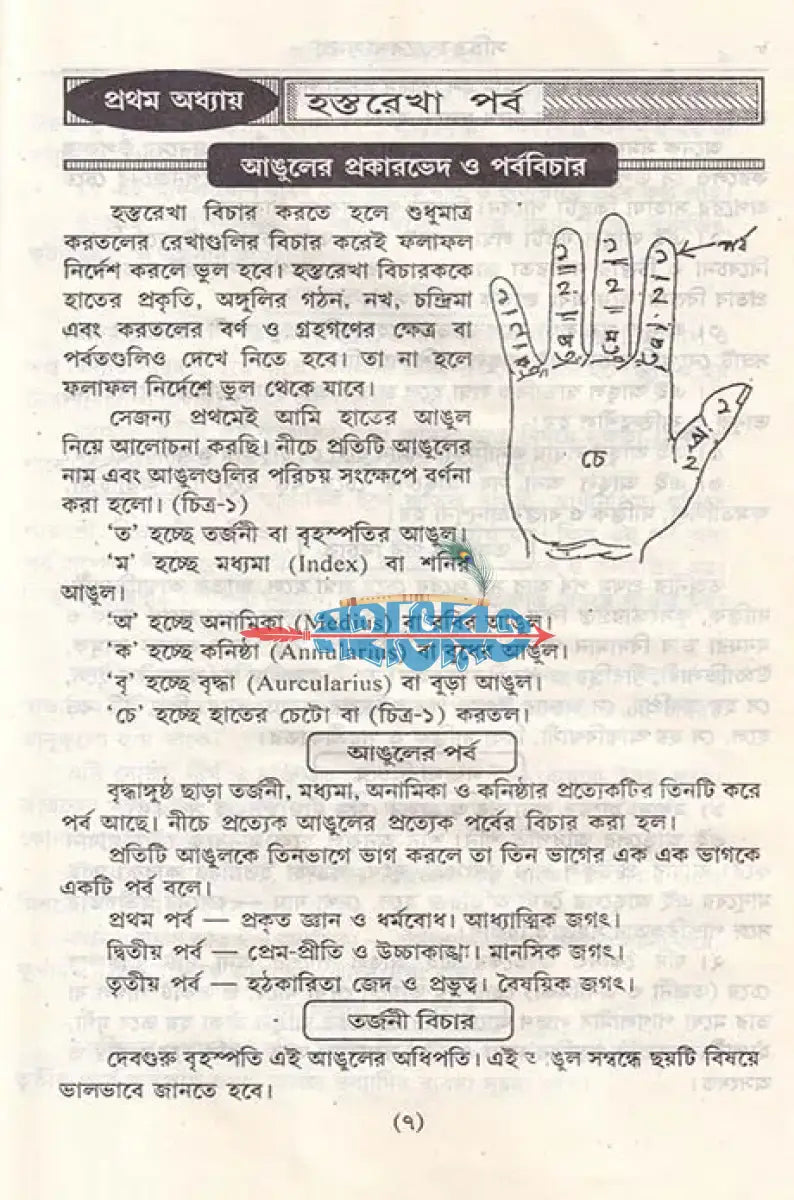 প্রথম অধ্যায়
হস্তরেখা পর্ব
আঙুলের প্রকারভেদ ও পর্ববিচার
হস্তরেখা বিচার করতে হলে শুধুমাত্র
করতলের রেখাগুলির বিচার করেই ফলাফল
নির্দেশ করলে ভুল হবে। হস্তরেখা বিচারককে
হাতের প্রকৃতি, অঙ্গুলির গঠন, নখ, চন্দ্রিমা
এবং করতলের বর্ণ ও গ্রহগণের ক্ষেত্র বা
পর্বতগুলিও দেখে নিতে হবে। তা না হলে
ফলাফল নির্দেশে ভুল থেকে যাবে।
সেজন্য প্রথমেই আমি হাতের আঙুল
নিয়ে আলোচনা করছি। নীচে প্রতিটি আঙুলের
নাম এবং আঙুলগুলির পরিচয় সংক্ষেপে বর্ণনা
করা হলো। (চিত্র-১)
পর্ব
চে
‘ত’ হচ্ছে তর্জনী বা বৃহস্পতির আঙুল।
‘ম’ হচ্ছে মধ্যমা (Index) বা শনির
আঙুল।
‘অ’ হচ্ছে অনামিকা (Medius) বা রবির আঙুল।
মহাভারত
‘ক’ হচ্ছে কনিষ্ঠা (Annularius) বা বুধের আঙুল।
‘বৃ’ হচ্ছে বৃদ্ধা (Aurcularius) বা বুড়া আঙুল।
‘চে’ হচ্ছে হাতের চেটো বা (চিত্র-১) করতল।
আঙুলের পর্ব
বৃদ্ধাঙ্গুষ্ঠ ছাড়া তর্জনী, মধ্যমা, অনামিকা ও কনিষ্ঠার প্রত্যেকটির তিনটি করে
পর্ব আছে। নীচে প্রত্যেক আঙুলের প্রত্যেক পর্বের বিচার করা হল।
প্রতিটি আঙুলকে তিনভাগে ভাগ করলে তা তিন ভাগের এক এক ভাগকে
একটি পর্ব বলে।
প্রথম পর্ব — প্রকৃত জ্ঞান ও ধর্মবোধ। আধ্যাত্মিক জগৎ।
দ্বিতীয় পর্ব — প্রেম-প্রীতি ও উচ্চাকাঙ্খা। মানসিক জগৎ।
তৃতীয় পর্ব — হঠকারিতা জেদ ও প্রভুত্ব। বৈষয়িক জগৎ।
তর্জনী বিচার
দেবগুরু বৃহস্পতি এই আঙুলের অধিপতি। এই সম্বন্ধে ছয়টি বিষয়ে
ভালভাবে জানতে হবে।
(৭)